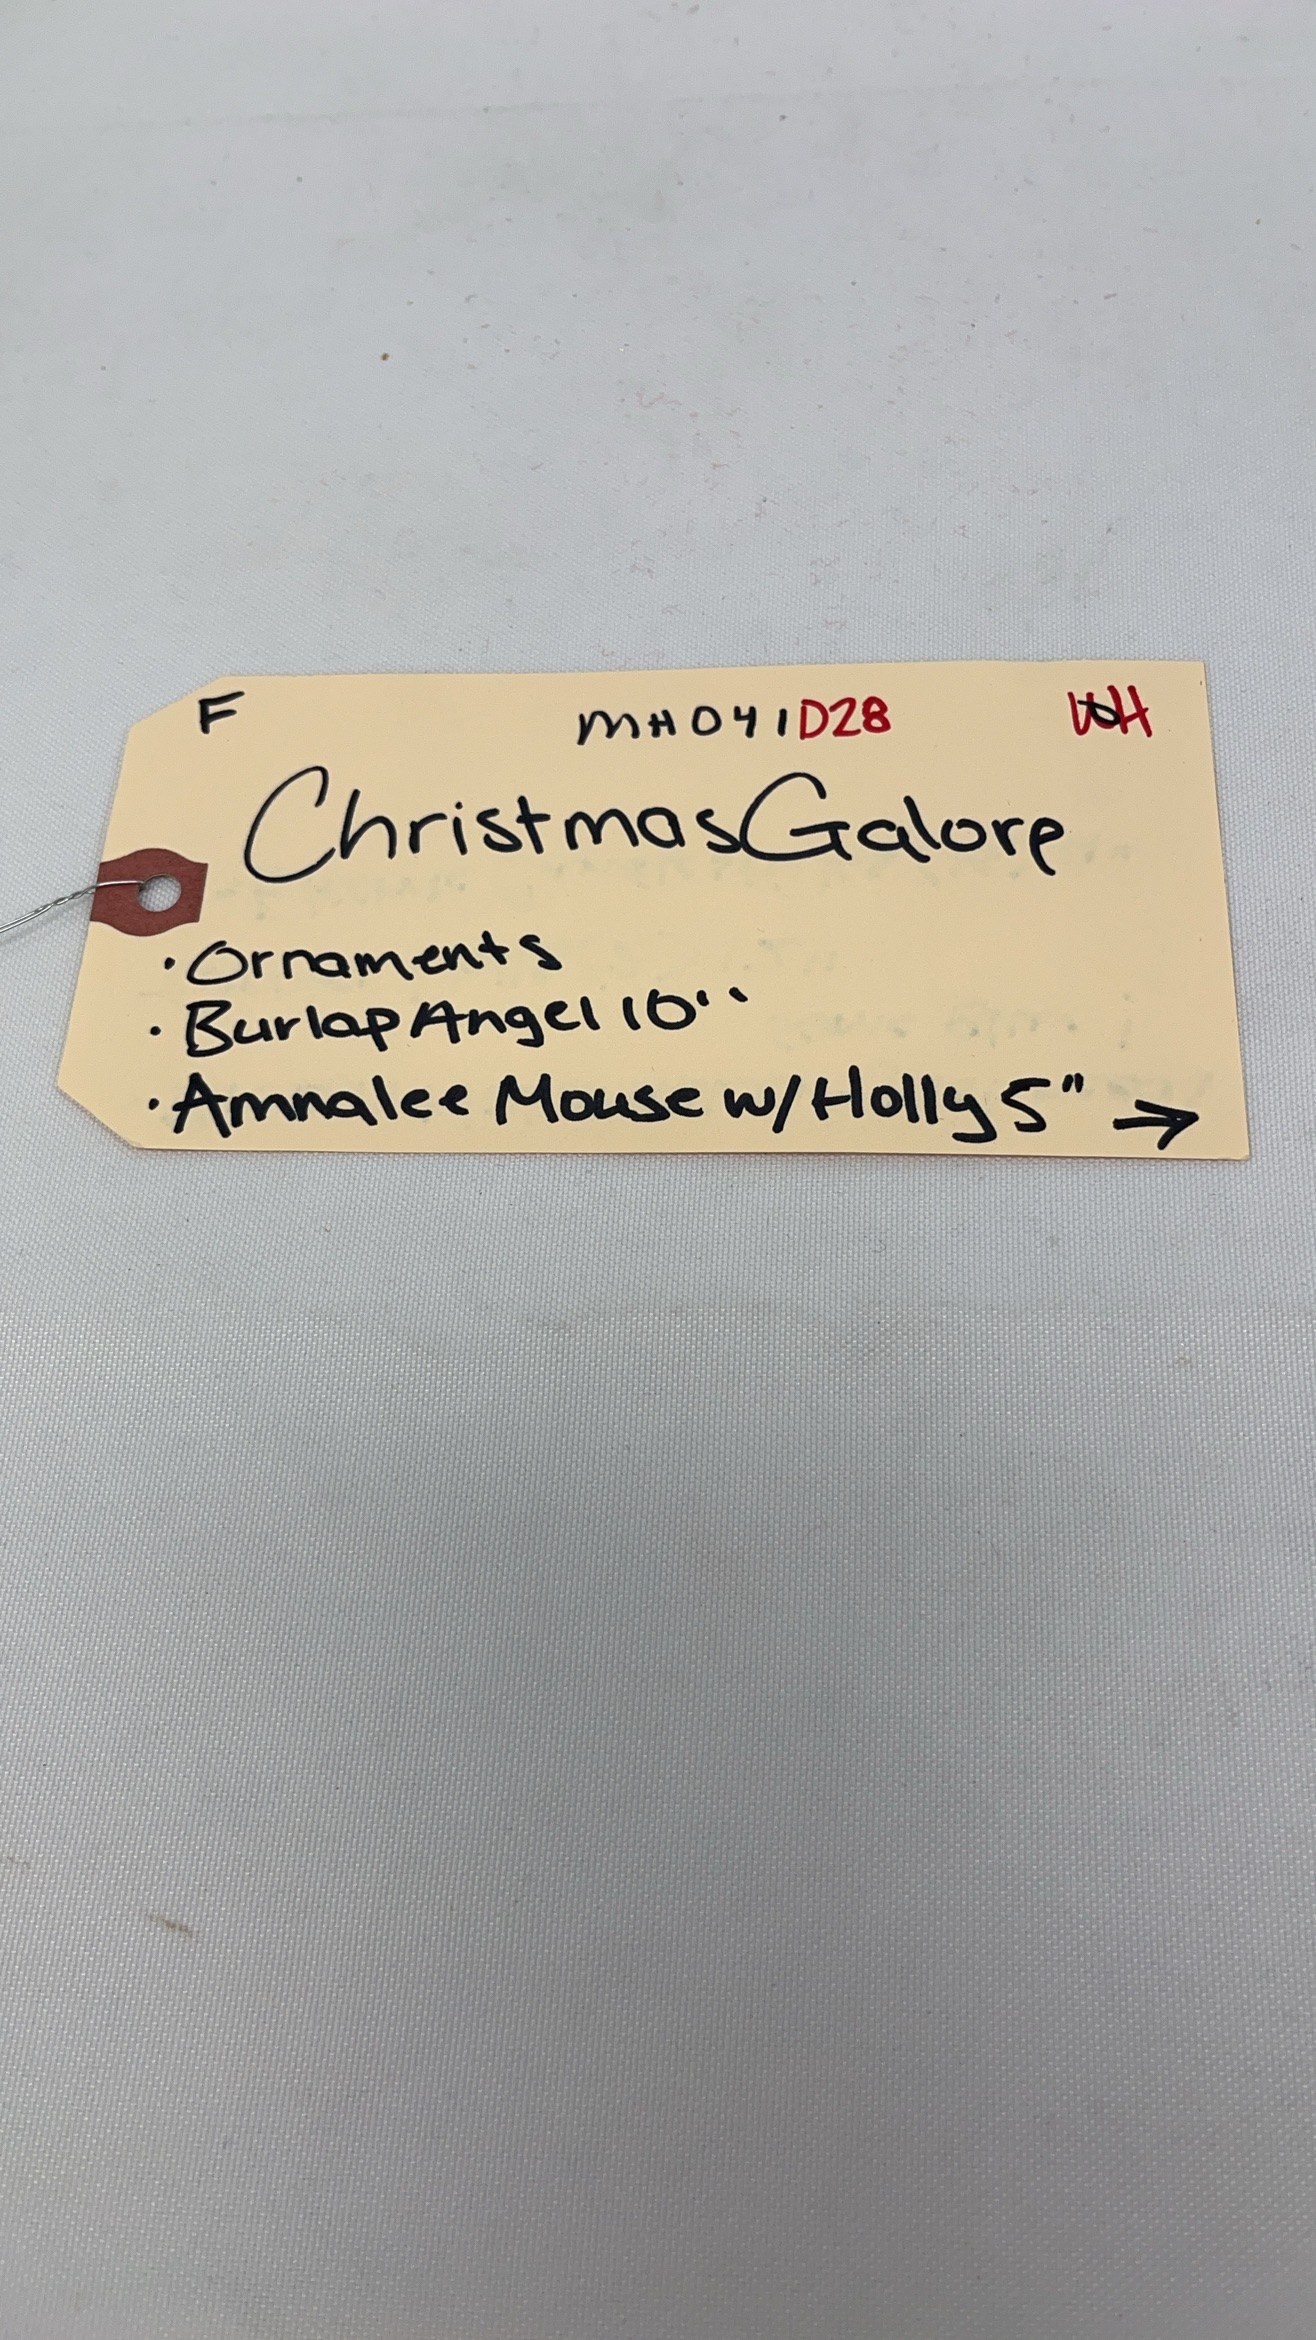 F MH041D28 WH
Christmas Galore
• Ornaments
• Burlap Angel 10"
• Amnalee Mouse w/ Holly 5" →